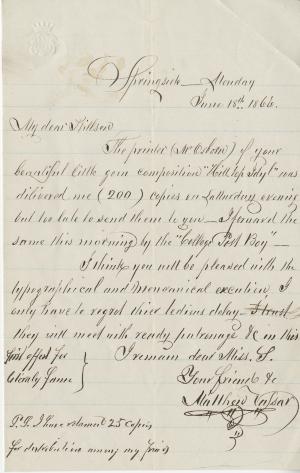 Springside – Monday
June 18th 1866.
My dear Stillson
The printer (Mr Osborn) of your
beautiful little gem composition "Hilltop Idyl" was
delivered me (200) copies on Saturday evening
but too late to send them to you – I forward the
same this morning by the "College Post Boy" –
I think you will be pleased with the
typographical and mechanical execution. I
only have to regret their tedious delay. I trust
they will meet with ready patronage & in this
first effort for
I remain dear Miss. S.
Literary fame
Your friend &c
Matthew Vassar
P.S. I have retained 25 copies
for distribution among my friends